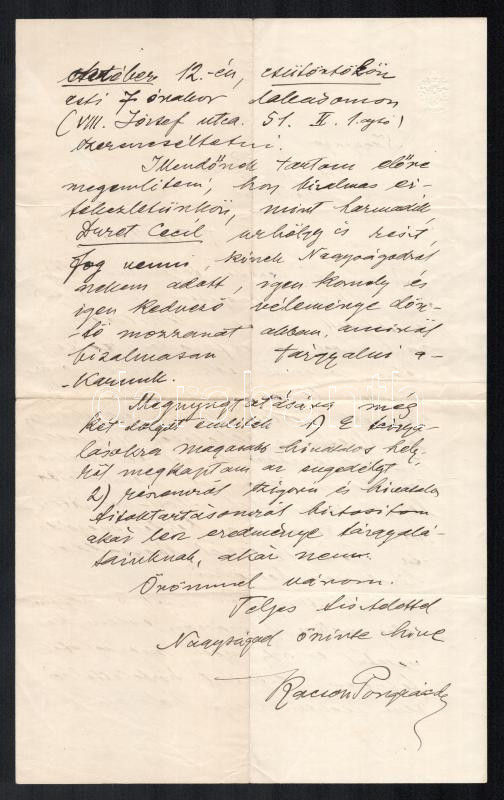 október 12.-én, csütörtökön
esti 7 órakor lakásomon
(VIII. József utca. 51. II. 1. ajtó)
szerencséltetni.
Illendőnek tartom előre
megemlíteni, hogy bizalmas ér-
tekezletünkön, mint harmadik,
Duret Cecil úrhölgy is részt
fog venni, kinek Nagyságodról
nekem adott, igen komoly és
igen kedvező véleménye dön-
-tő mozzanat abban, amiről
bizalmasan tárgyalni a-
-karunk.
Megnyugtatására még
két dolgot említek 1) E tárgya-
lásokra magasabb hivatalos hely-
ről megkaptam az engedélyt,
2) részemről szigorú és hivatalos
titoktartásomról biztosítom
akár lesz eredménye tárgyalá-
sainknak, akár nem.
Örömmel várom.
Teljes tisztelettel
Nagyságod őszinte híve
Pongrácz